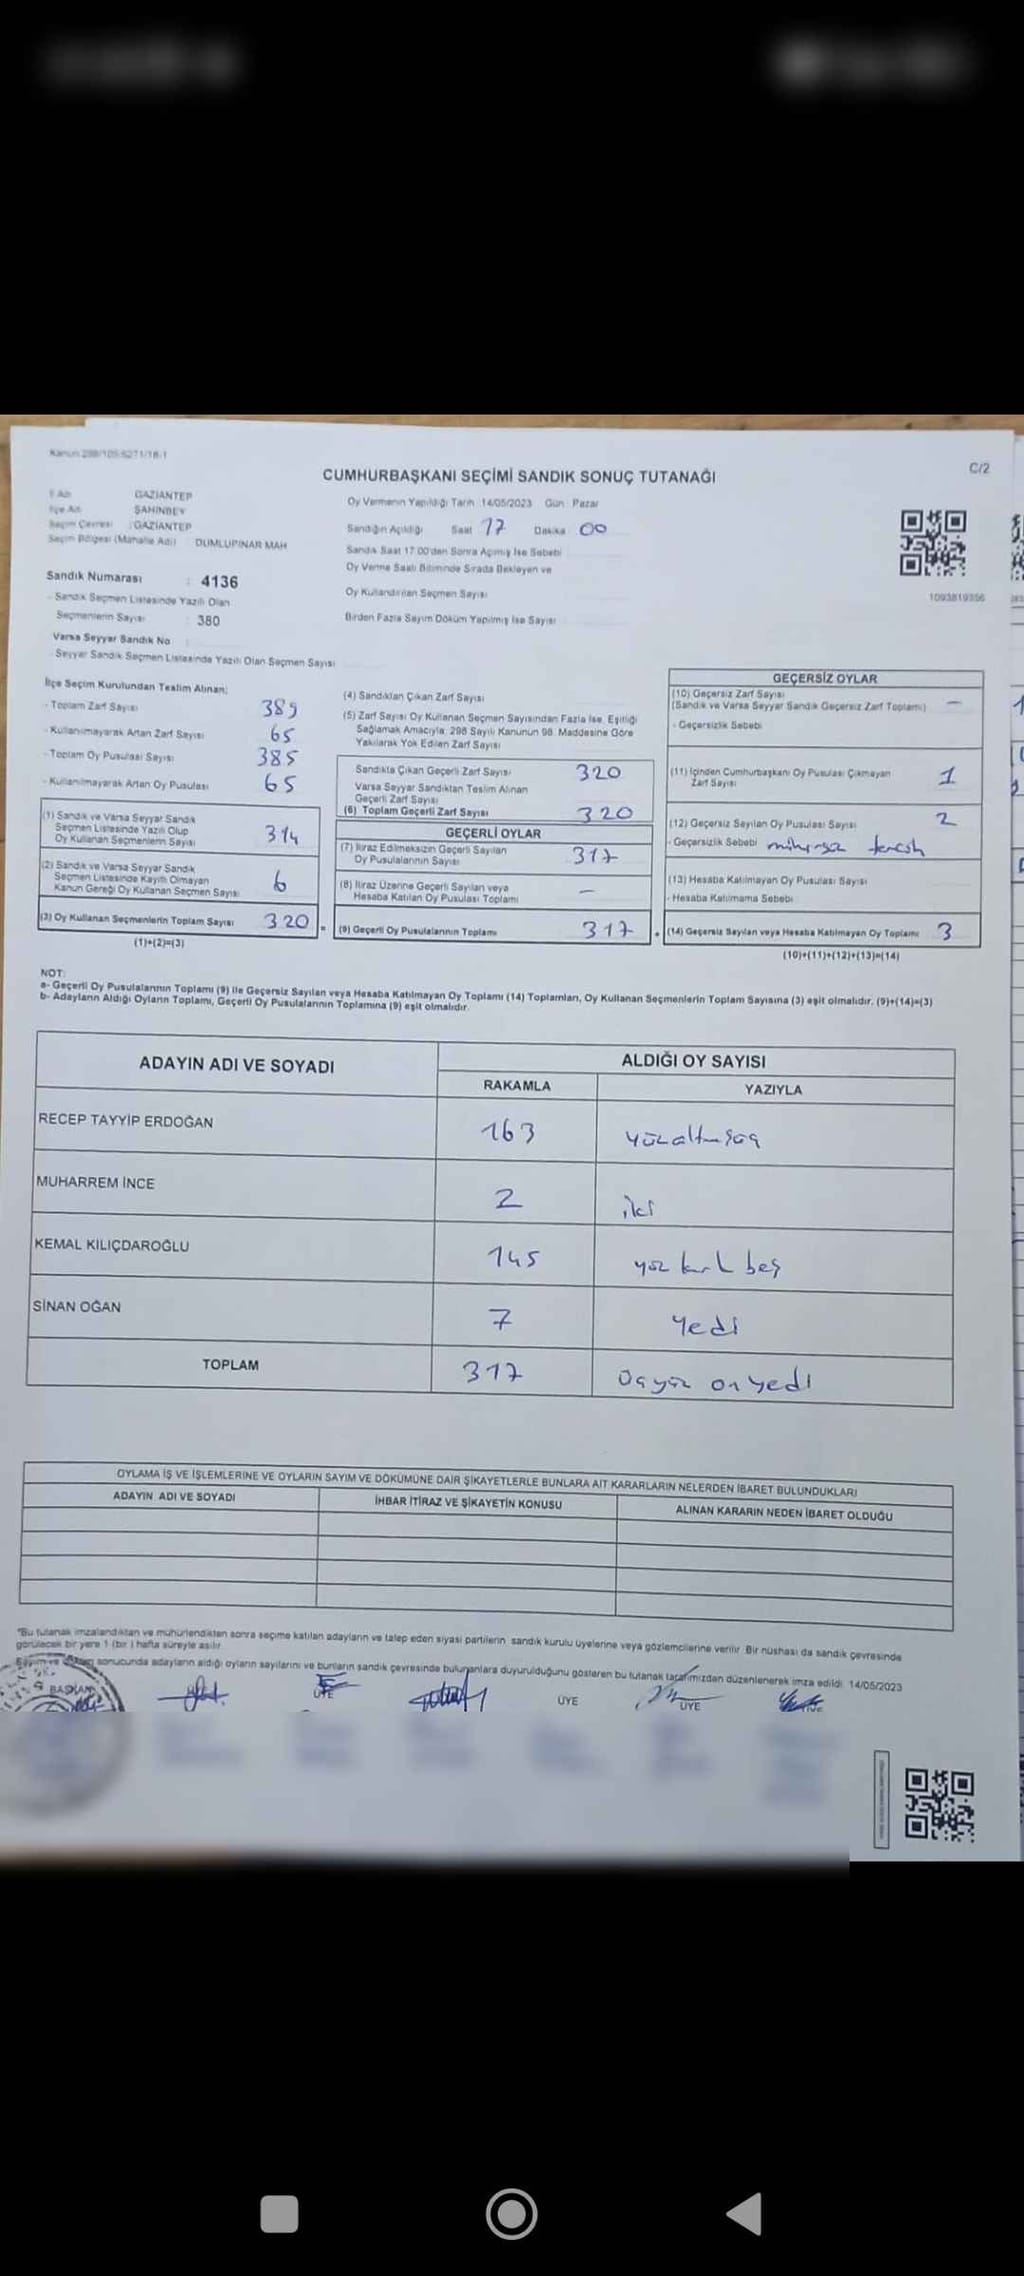 Kanun 298/105-6271/18-1
C/2
CUMHURBAŞKANI SEÇİMİ SANDIK SONUÇ TUTANAĞI
İl Adı GAZİANTEP
İlçe Adı ŞAHİNBEY
Seçim Çevresi : GAZİANTEP
Seçim Bölgesi (Mahalle Adı) DUMLUPINAR MAH
Sandık Numarası : 4136
- Sandık Seçmen Listesinde Yazılı Olan
Seçmenlerin Sayısı : 380
Varsa Seyyar Sandık No
- Seyyar Sandık Seçmen Listesinde Yazılı Olan Seçmen Sayısı
Oy Vermenin Yapıldığı Tarih 14/05/2023 Gün : Pazar
Sandığın Açıldığı Saat 17 Dakika 00
Sandık Saat 17.00'den Sonra Açılmış İse Sebebi
Oy Verme Saati Bitiminde Sırada Bekleyen ve
Oy Kullandırılan Seçmen Sayısı
Birden Fazla Sayım Döküm Yapılmış İse Sayısı
1093819356
İlçe Seçim Kurulundan Teslim Alınan;
- Toplam Zarf Sayısı 389
- Kullanılmayarak Artan Zarf Sayısı 65
- Toplam Oy Pusulası Sayısı 385
- Kullanılmayarak Artan Oy Pusulası 65
(1) Sandık ve Varsa Seyyar Sandık
Seçmen Listesinde Yazılı Olup
Oy Kullanan Seçmenlerin Sayısı 314
(2) Sandık ve Varsa Seyyar Sandık
Seçmen Listesinde Kayıtlı Olmayan
Kanun Gereği Oy Kullanan Seçmen Sayısı 6
(3) Oy Kullanan Seçmenlerin Toplam Sayısı 320 =
(1)+(2)=(3)
(4) Sandıktan Çıkan Zarf Sayısı
(5) Zarf Sayısı Oy Kullanan Seçmen Sayısından Fazla İse, Eşitliği
Sağlamak Amacıyla; 298 Sayılı Kanunun 98. Maddesine Göre
Yakılarak Yok Edilen Zarf Sayısı
Sandıkta Çıkan Geçerli Zarf Sayısı 320
Varsa Seyyar Sandıktan Teslim Alınan
Geçerli Zarf Sayısı
(6) Toplam Geçerli Zarf Sayısı 320
GEÇERLİ OYLAR
(7) İtiraz Edilmeksizin Geçerli Sayılan
Oy Pusulalarının Sayısı 317
(8) İtiraz Üzerine Geçerli Sayılan veya
Hesaba Katılan Oy Pusulası Toplamı -
(9) Geçerli Oy Pusulalarının Toplamı 317 +
GEÇERSİZ OYLAR
(10) Geçersiz Zarf Sayısı
(Sandık ve Varsa Seyyar Sandık Geçersiz Zarf Toplamı) -
- Geçersizlik Sebebi
(11) İçinden Cumhurbaşkanı Oy Pusulası Çıkmayan
Zarf Sayısı 1
(12) Geçersiz Sayılan Oy Pusulası Sayısı 2
- Geçersizlik Sebebi
(13) Hesaba Katılmayan Oy Pusulası Sayısı
- Hesaba Katılmama Sebebi
(14) Geçersiz Sayılan veya Hesaba Katılmayan Oy Toplamı 3
(10)+(11)+(12)+(13)=(14)
NOT:
a- Geçerli Oy Pusulalarının Toplamı (9) ile Geçersiz Sayılan veya Hesaba Katılmayan Oy Toplamı (14) Toplamları, Oy Kullanan Seçmenlerin Toplam Sayısına (3) eşit olmalıdır. (9)+(14)=(3)
b- Adayların Aldığı Oyların Toplamı, Geçerli Oy Pusulalarının Toplamına (9) eşit olmalıdır.
ADAYIN ADI VE SOYADI ALDIĞI OY SAYISI
RAKAMLA YAZIYLA
RECEP TAYYİP ERDOĞAN 163 yüzaltmışüç
MUHARREM İNCE 2 iki
KEMAL KILIÇDAROĞLU 145 yüz kırk beş
SİNAN OĞAN 7 Yedi
TOPLAM 317 üçyüz onyedi
OYLAMA İŞ VE İŞLEMLERİNE VE OYLARIN SAYIM VE DÖKÜMÜNE DAİR ŞİKAYETLERLE BUNLARA AİT KARARLARIN NELERDEN İBARET BULUNDUKLARI
ADAYIN ADI VE SOYADI İHBAR İTİRAZ VE ŞİKAYETİN KONUSU ALINAN KARARIN NEDEN İBARET OLDUĞU
*Bu tutanak imzalandıktan ve mühürlendikten sonra seçime katılan adayların ve talep eden siyasi partilerin sandık kurulu üyelerine veya gözlemcilerine verilir. Bir nüshası da sandık çevresinde
görülecek bir yere 1 (bir) hafta süreyle asılır.
Sayım ve döküm sonucunda adayların aldığı oyların sayılarını ve bunların sandık çevresinde bulunanlara duyurulduğunu gösteren bu tutanak tarafımızdan düzenlenerek imza edildi. 14/05/2023
BAŞKAN ÜYE ÜYE ÜYE ÜYE